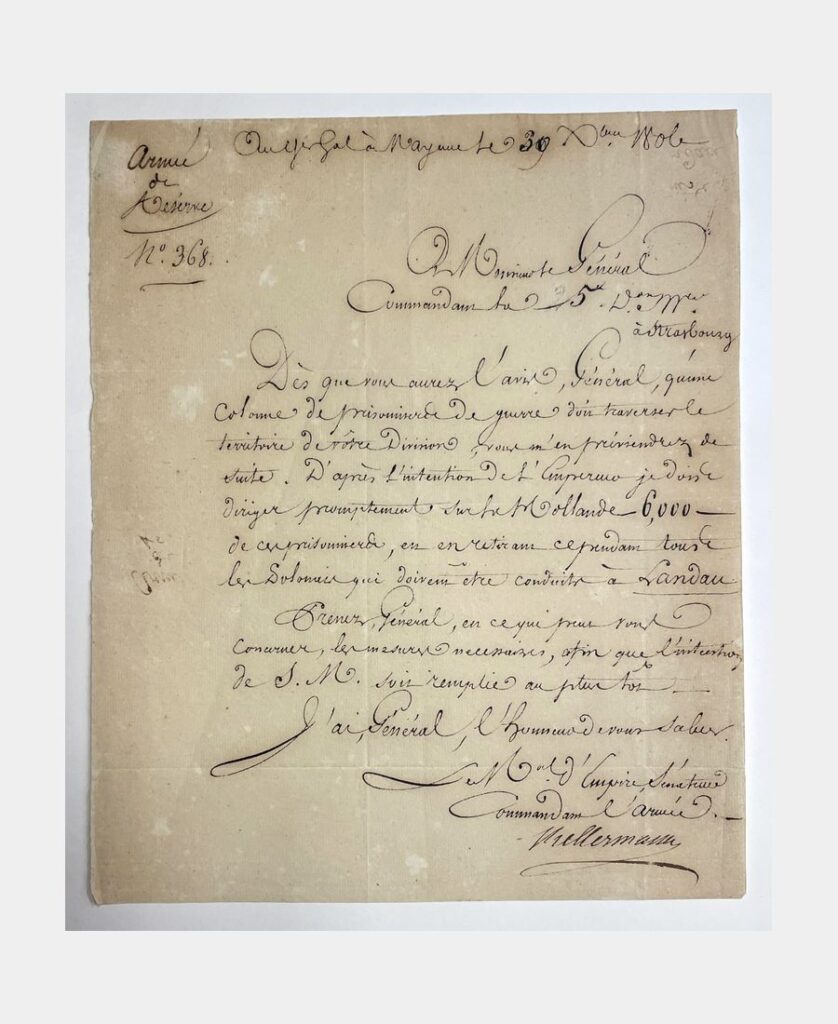 Armée
de
Réserve
N.º 368.
Au Qer Gal à Mayence le 30 Xbre 1806
A Monsieur le Général
Commandant la 5e Don Mre
à Strasbourg
Dès que vous aurez l'avis, Général, qu'une
Colonne de prisonniers de guerre doit traverser le
territoire de vôtre Division, vous m'en préviendrez de
suite. D'après l'intention de l'Empereur je dois
diriger promptement sur la Hollande 6,000
de ces prisonniers, en en retirant cependant tous
les Polonais qui doivent être conduits à Landau
Prenez, Général, en ce qui peut vous
concerner, les mesures necessaires, afin que l'intention
de S. M. soit remplie au plus tôt.
J'ai, Général, l'honneur de vous saluer.
Le Mal. d'Empire, Sénateur
Commandant l'armée.
Kellermann